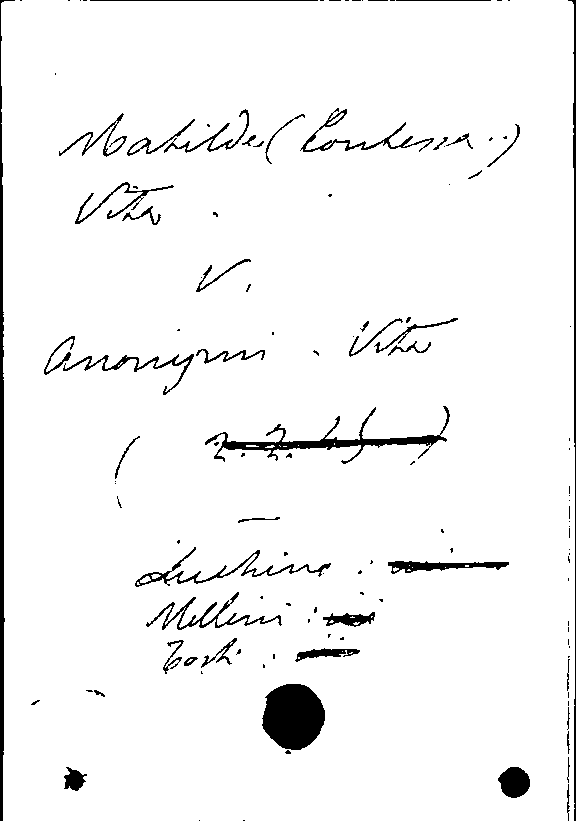 Matilde (Contessa..)
Vita.
V.
Anonymi. Vita
(Z.Z.45)
Luchino:
Mellini:
Tosti: